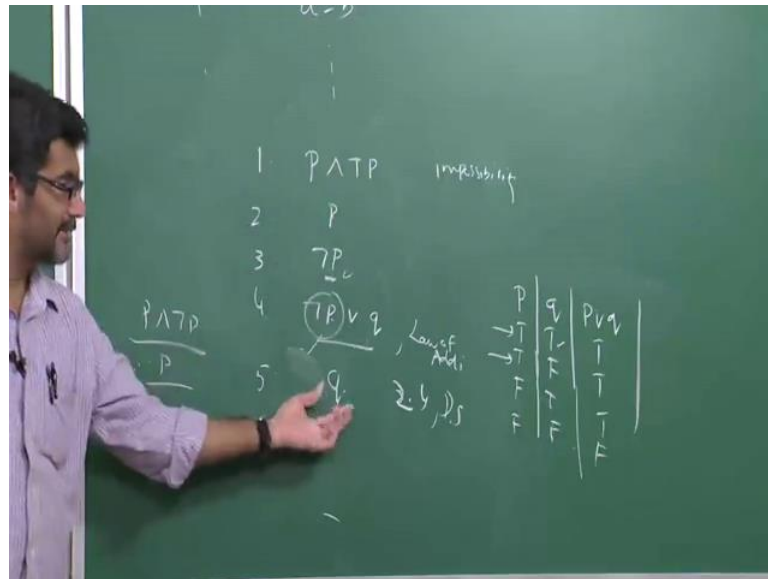 a-b
1. P ∧ ¬P impossibility
2 P
3 ¬P
4 ¬P ∨ q , Law of Addi
5 q 2.4, D.S
P∧¬P
P
P | q | P∨q
→ T | T | T
→ T | F | T
F | T | T
F | F | F